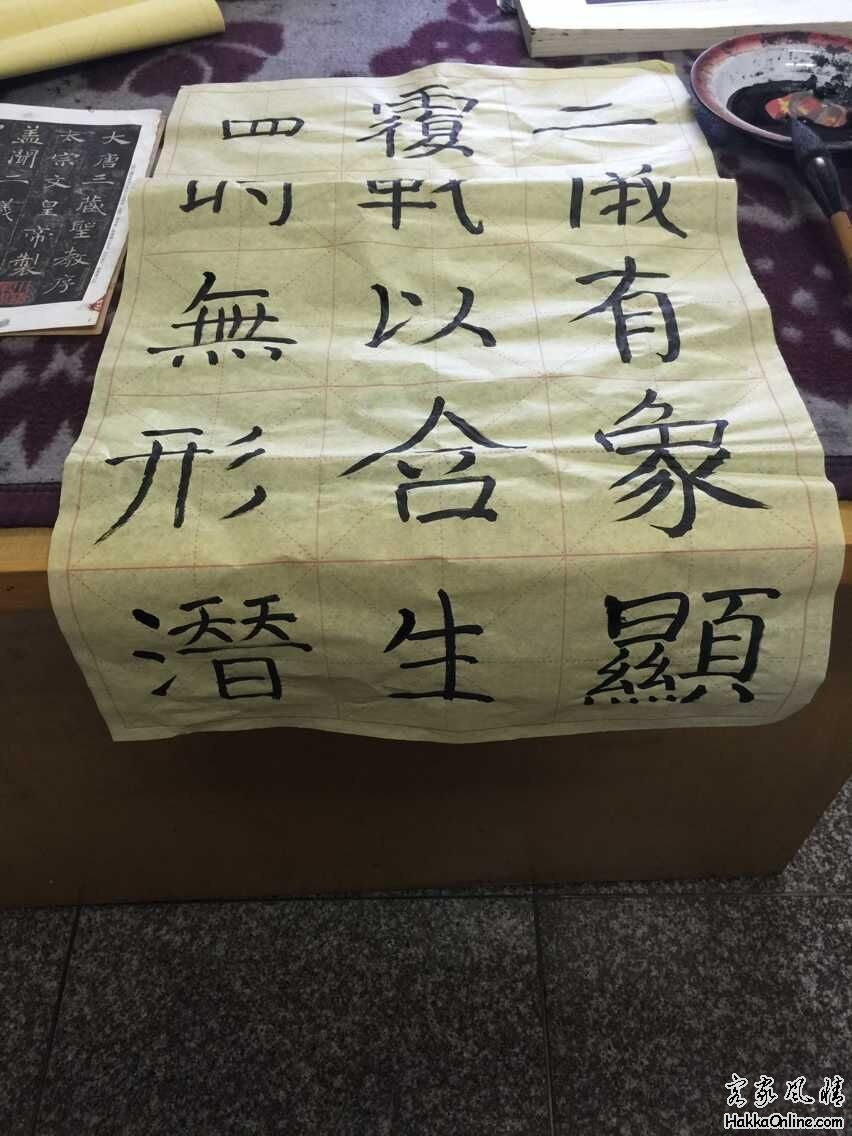 二儀有象顯
覆載以含生
四時無形潛
大唐三藏聖教序
太宗文皇帝製
盖聞二儀
客家风情
HakkaOnline.com